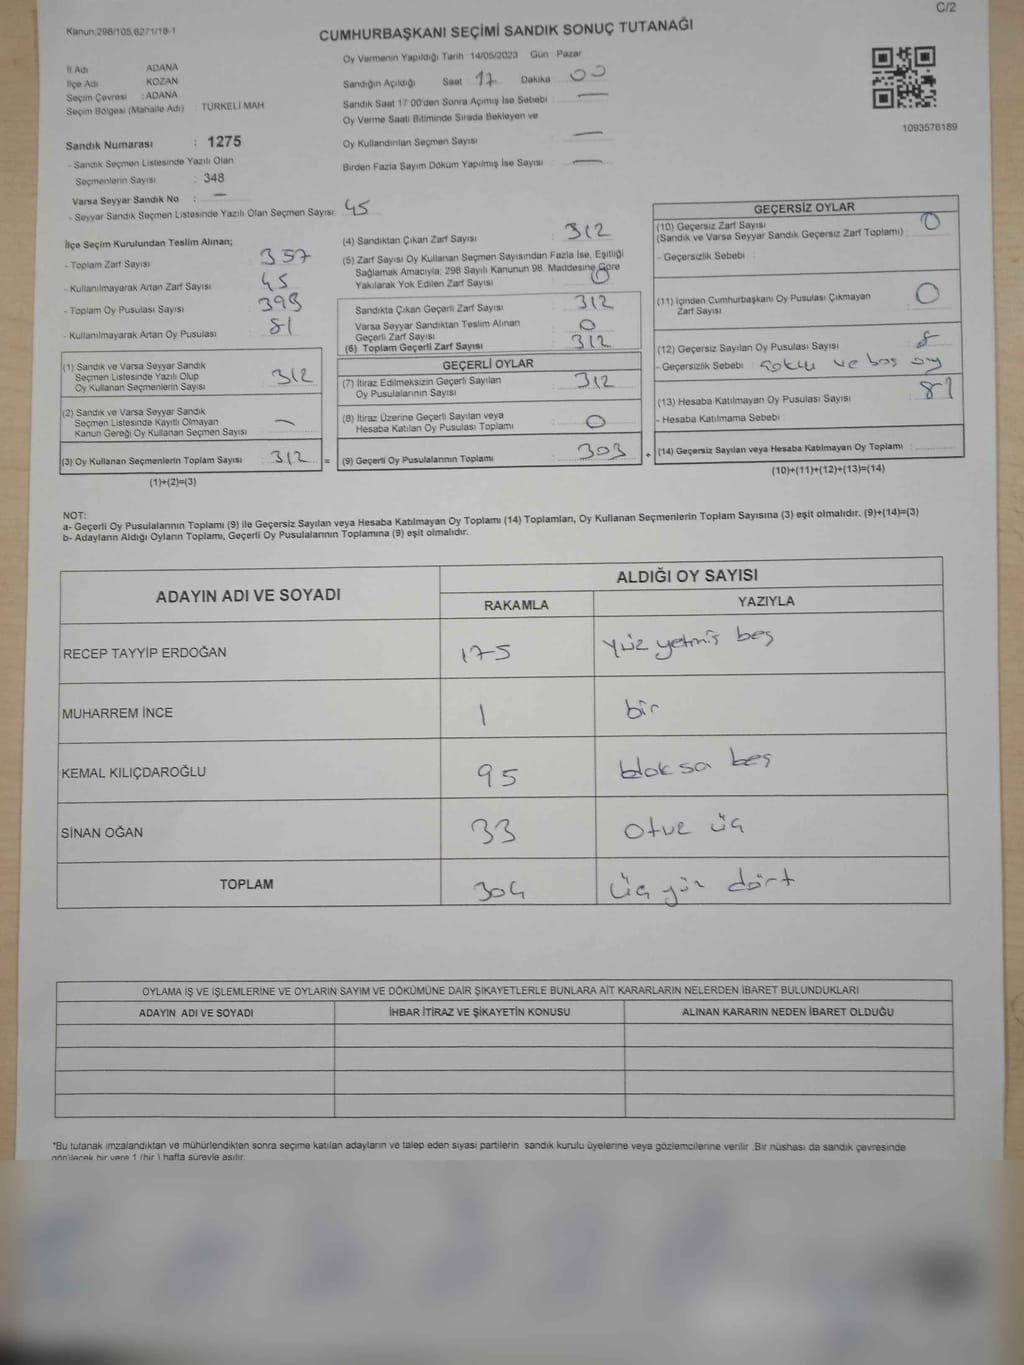 C/2
Kanun:298/105,6271/18-1
CUMHURBAŞKANI SEÇİMİ SANDIK SONUÇ TUTANAĞI
İl Adı ADANA
İlçe Adı KOZAN
Seçim Çevresi : ADANA
Seçim Bölgesi (Mahalle Adı) TÜRKELİ MAH
Sandık Numarası : 1275
- Sandık Seçmen Listesinde Yazılı Olan
Seçmenlerin Sayısı : 348
Varsa Seyyar Sandık No : —
- Seyyar Sandık Seçmen Listesinde Yazılı Olan Seçmen Sayısı: 45
Oy Vermenin Yapıldığı Tarih 14/05/2023 Gün Pazar
Sandığın Açıldığı Saat 17 Dakika 00
Sandık Saat 17:00'den Sonra Açımış İse Sebebi : —
Oy Verme Saati Bitiminde Sırada Bekleyen ve
Oy Kullandırılan Seçmen Sayısı : —
Birden Fazla Sayım Döküm Yapılmış İse Sayısı : —
1093576189
İlçe Seçim Kurulundan Teslim Alınan;
- Toplam Zarf Sayısı : 357
- Kullanılmayarak Artan Zarf Sayısı : 45
- Toplam Oy Pusulası Sayısı : 393
- Kullanılmayarak Artan Oy Pusulası : 81
(1) Sandık ve Varsa Seyyar Sandık
Seçmen Listesinde Yazılı Olup
Oy Kullanan Seçmenlerin Sayısı : 312
(2) Sandık ve Varsa Seyyar Sandık
Seçmen Listesinde Kayıtlı Olmayan
Kanun Gereği Oy Kullanan Seçmen Sayısı : —
(3) Oy Kullanan Seçmenlerin Toplam Sayısı : 312 =
(1)+(2)=(3)
(4) Sandıktan Çıkan Zarf Sayısı : 312
(5) Zarf Sayısı Oy Kullanan Seçmen Sayısından Fazla İse, Eşitliği
Sağlamak Amacıyla; 298 Sayılı Kanunun 98. Maddesine Göre
Yakılarak Yok Edilen Zarf Sayısı : 0
Sandıkta Çıkan Geçerli Zarf Sayısı : 312
Varsa Seyyar Sandıktan Teslim Alınan
Geçerli Zarf Sayısı : 0
(6) Toplam Geçerli Zarf Sayısı : 312
GEÇERLİ OYLAR
(7) İtiraz Edilmeksizin Geçerli Sayılan
Oy Pusulalarının Sayısı : 312
(8) İtiraz Üzerine Geçerli Sayılan veya
Hesaba Katılan Oy Pusulası Toplamı : 0
(9) Geçerli Oy Pusulalarının Toplamı : 303 +
GEÇERSİZ OYLAR
(10) Geçersiz Zarf Sayısı
(Sandık ve Varsa Seyyar Sandık Geçersiz Zarf Toplamı) : 0
- Geçersizlik Sebebi :
(11) İçinden Cumhurbaşkanı Oy Pusulası Çıkmayan
Zarf Sayısı : 0
(12) Geçersiz Sayılan Oy Pusulası Sayısı : 8
- Geçersizlik Sebebi : ve boş oy
(13) Hesaba Katılmayan Oy Pusulası Sayısı :
- Hesaba Katılmama Sebebi :
(14) Geçersiz Sayılan veya Hesaba Katılmayan Oy Toplamı :
(10)+(11)+(12)+(13)=(14)
NOT:
a- Geçerli Oy Pusulalarının Toplamı (9) ile Geçersiz Sayılan veya Hesaba Katılmayan Oy Toplamı (14) Toplamları, Oy Kullanan Seçmenlerin Toplam Sayısına (3) eşit olmalıdır. (9)+(14)=(3)
b- Adayların Aldığı Oyların Toplamı, Geçerli Oy Pusulalarının Toplamına (9) eşit olmalıdır.
ADAYIN ADI VE SOYADI ALDIĞI OY SAYISI
RAKAMLA YAZIYLA
RECEP TAYYİP ERDOĞAN 175 yüz yetmiş beş
MUHARREM İNCE 1 bir
KEMAL KILIÇDAROĞLU 95 doksa beş
SİNAN OĞAN 33 otuz üç
TOPLAM 304 üç yüz dört
OYLAMA İŞ VE İŞLEMLERİNE VE OYLARIN SAYIM VE DÖKÜMÜNE DAİR ŞİKAYETLERLE BUNLARA AİT KARARLARIN NELERDEN İBARET BULUNDUKLARI
ADAYIN ADI VE SOYADI İHBAR İTİRAZ VE ŞİKAYETİN KONUSU ALINAN KARARIN NEDEN İBARET OLDUĞU
*Bu tutanak imzalandıktan ve mühürlendikten sonra seçime katılan adayların ve talep eden siyasi partilerin sandık kurulu üyelerine veya gözlemcilerine verilir .Bir nüshası da sandık çevresinde
görülecek bir yere 1 (bir ) hafta süreyle asılır.